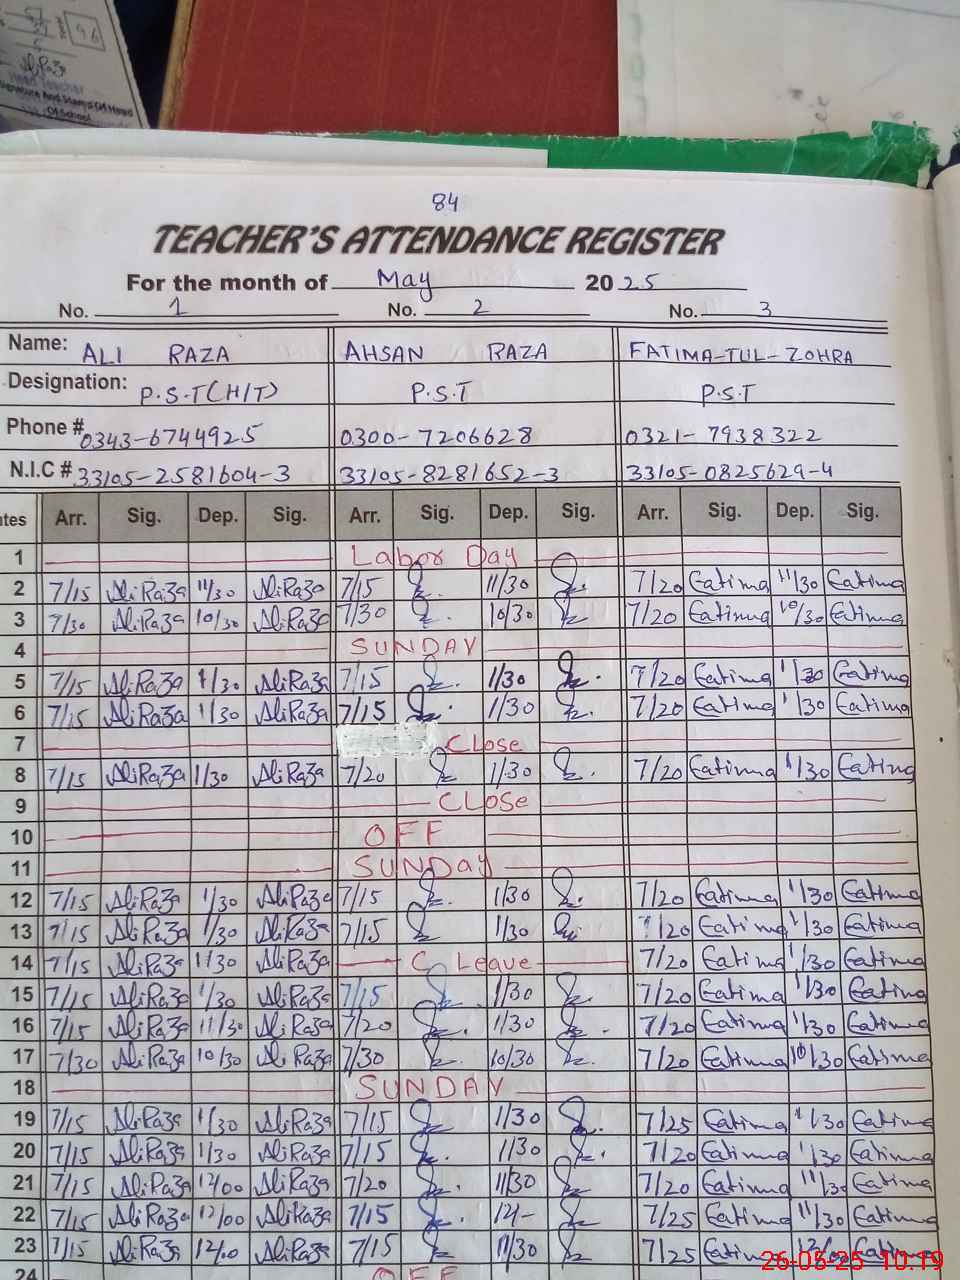 96
AliRaza
Head Teacher
Signature And Stamp Of Head
Of School
84
TEACHER'S ATTENDANCE REGISTER
For the month of May 2025
No. 1 No. 2 No. 3
Name: ALI RAZA AHSAN RAZA FATIMA-TUL-ZOHRA
Designation: P.S.T(H/T) P.S.T P.S.T
Phone # 0343-6744925 0300-7206628 0321-7938322
N.I.C # 33105-2581604-3 33105-8281652-3 33105-0825629-4
tes Arr. Sig. Dep. Sig. Arr. Sig. Dep. Sig. Arr. Sig. Dep. Sig.
1 Labor Day
2 7/15 AliRaza 11/30 AliRaza 7/15 11/30 7/20 Eatima 11/30 Eatima
3 7/30 AliRaza 10/30 AliRaza 7/30 10/30 7/20 Eatima 10/30 Eatima
4 SUNDAY
5 7/15 AliRaza 1/30 AliRaza 7/15 1/30 7/20 Eatima 1/30 Eatima
6 7/15 AliRaza 1/30 AliRaza 7/15 1/30 7/20 Eatima 1/30 Eatima
7 CLose
8 7/15 AliRaza 1/30 AliRaza 7/20 1/30 7/20 Eatima 1/30 Eatima
9 CLose
10 OFF
11 SUNDay
12 7/15 AliRaza 1/30 AliRaza 7/15 1/30 7/20 Eatima 1/30 Eatima
13 7/15 AliRaza 1/30 AliRaza 7/15 1/30 7/20 Eatima 1/30 Eatima
14 7/15 AliRaza 1/30 AliRaza C Leave 7/20 Eatima 1/30 Eatima
15 7/15 AliRaza 1/30 AliRaza 7/15 1/30 7/20 Eatima 1/30 Eatima
16 7/15 AliRaza 11/30 AliRaza 7/20 1/30 7/20 Eatima 1/30 Eatima
17 7/30 AliRaza 10/30 AliRaza 7/30 10/30 7/20 Eatima 10/30 Eatima
18 SUNDAY
19 7/15 AliRaza 1/30 AliRaza 7/15 1/30 7/25 Eatima 1/30 Eatima
20 7/15 AliRaza 1/30 AliRaza 7/15 1/30 7/20 Eatima 1/30 Eatima
21 7/15 AliRaza 12/00 AliRaza 7/20 11/30 7/20 Eatima 11/30 Eatima
22 7/15 AliRaza 12/00 AliRaza 7/15 12/- 7/25 Eatima 11/30 Eatima
23 7/15 AliRaza 12/00 AliRaza 7/15 11/30 7/25 Eatima Eatima
24 OFF
26-05-25 10:19